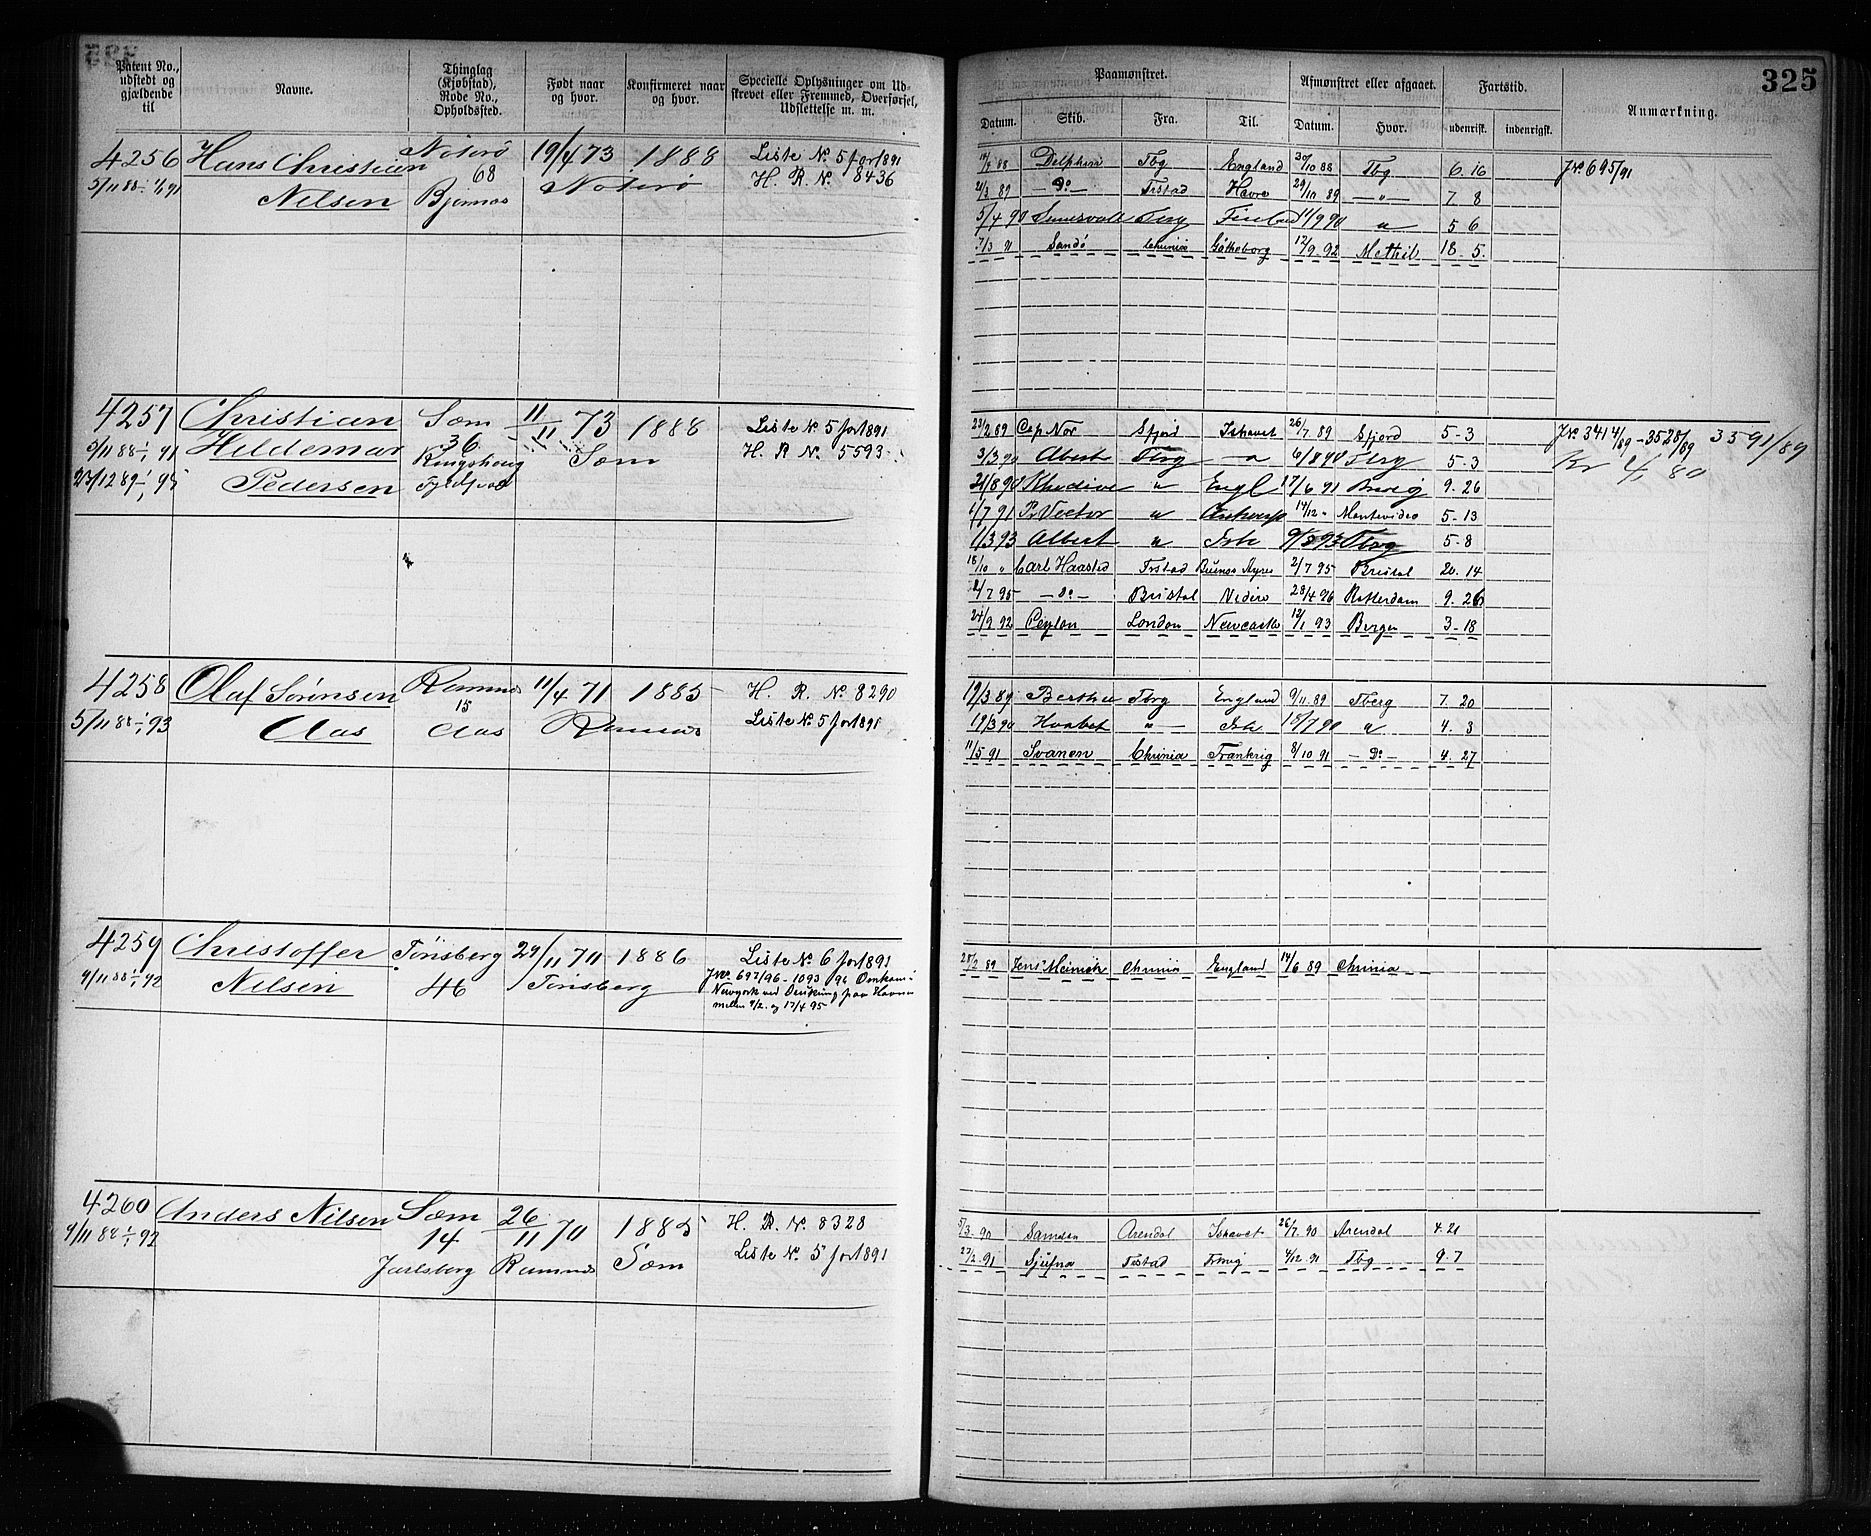 325
Patent No., udstedt og gjældende til
Navne.
Thinglag (Kjøbstad), Rode No., Opholdssted.
Født naar og hvor.
Konfirmeret naar og hvor.
Specielle Oplysninger om Udskrevet eller Fremmed, Overførsel, Udslettelse m. m.
Paamønstret.
Afmønstret eller afgaaet.
Fartstid.
Anmærkning.
Datum. Skib. Fra. Til. Datum. Hvor. udenrisk. indenrigsk.
4256 Hans Christian Nøterø 19/4 73 1888 Liste No. 5 for 1891
5/11 88 - 1/6 91 Nilsen 68 Bjørnøs Nøterø H. R. No. 8436
88 Delphin Tbg England 30/10 88 Tbg 6. 16 JNo. 695/91
2/3 89 — Do — Frstad Havre 29/10 89 — " — 7 8
5/4 90 Tbrg 11/9 90 " 5 6
7/3 91 Sandö Chrinia Götheborg 12/9. 92 Methil 18. 5.
4257 Christian Sæm 11/11 73 1888 Liste No. 5 for 1891
5/11 88 - 1/1 91 Heldemar 36 Ringshoug Sæm H. R No. 5593
23/12 89 - 1/1 95 Pedersen
23/2 89 Cap Nor Sfjord Ishavet 26/7 89 Sfjord 5-3 JNo. 3414/89 - 3528/89 3591/89
3/3 90 Albert Tbrg — " 6/8 90 Tbrg 5-3 Kr 4, 80
21/8 90 Khedive " Engl 17/6 91 Brevig 9. 26
1/7 91 Pr Victor " Antwerp 14/12 " Montevideo 5-13
1/3 93 Albert " Ish 9/8 93 Tbrg 5-8
18/10 " Carl Haasted Frstad Buenos Ayres 2/7 95 Bristol 20. 14
2/7 95 — Do — Bristol Nedero 28/4 96 Rotterdam 9. 26
24/9 92 Ceylon London Newcastle 12/1 93 Bergen 3-18
4258 Olaf Sørensen Ramnes 11/4 71 1885 H. R. No. 8290
5/11 88 - 1/1 93 Aas 15 Aas Ramnes Liste No. 5 for 1891
19/3 89 Berthe Tbrg England 9/11 89 Tberg 7. 20
19/3 90 Haabet " — Ish 15/7 90 " 4. 3
11/5 91 Svanen Chrinia Frankrig 8/10 91 — Do — 4. 27
4259 Christoffer Tønsberg 29/11 70 1886 Liste No. 6 for 1891
9/11 88 - 1/1 92 Nilsen 46 Tønsberg JNo. 697/96 - 1093/96 Omkom i
Newyork ved Drukning paa Havnen
mellem 9/2. og 17/4 95
28/2 89 Jens Meinich Chrinia England 14/6 89 Chrinia
4260 Anders Nilsen Sæm 26/11 70 1885 H. R. No. 8328
9/11 88 - 1/1 92 14 Jarlsberg Ramnes Sæm Liste No. 5 for 1891
5/3. 90 Samson Arendal Ishavet 26/7. 90 Arendal 4. 21
27/2. 91 Sjufna Frstad 4/12 91 Tbg 9. 7